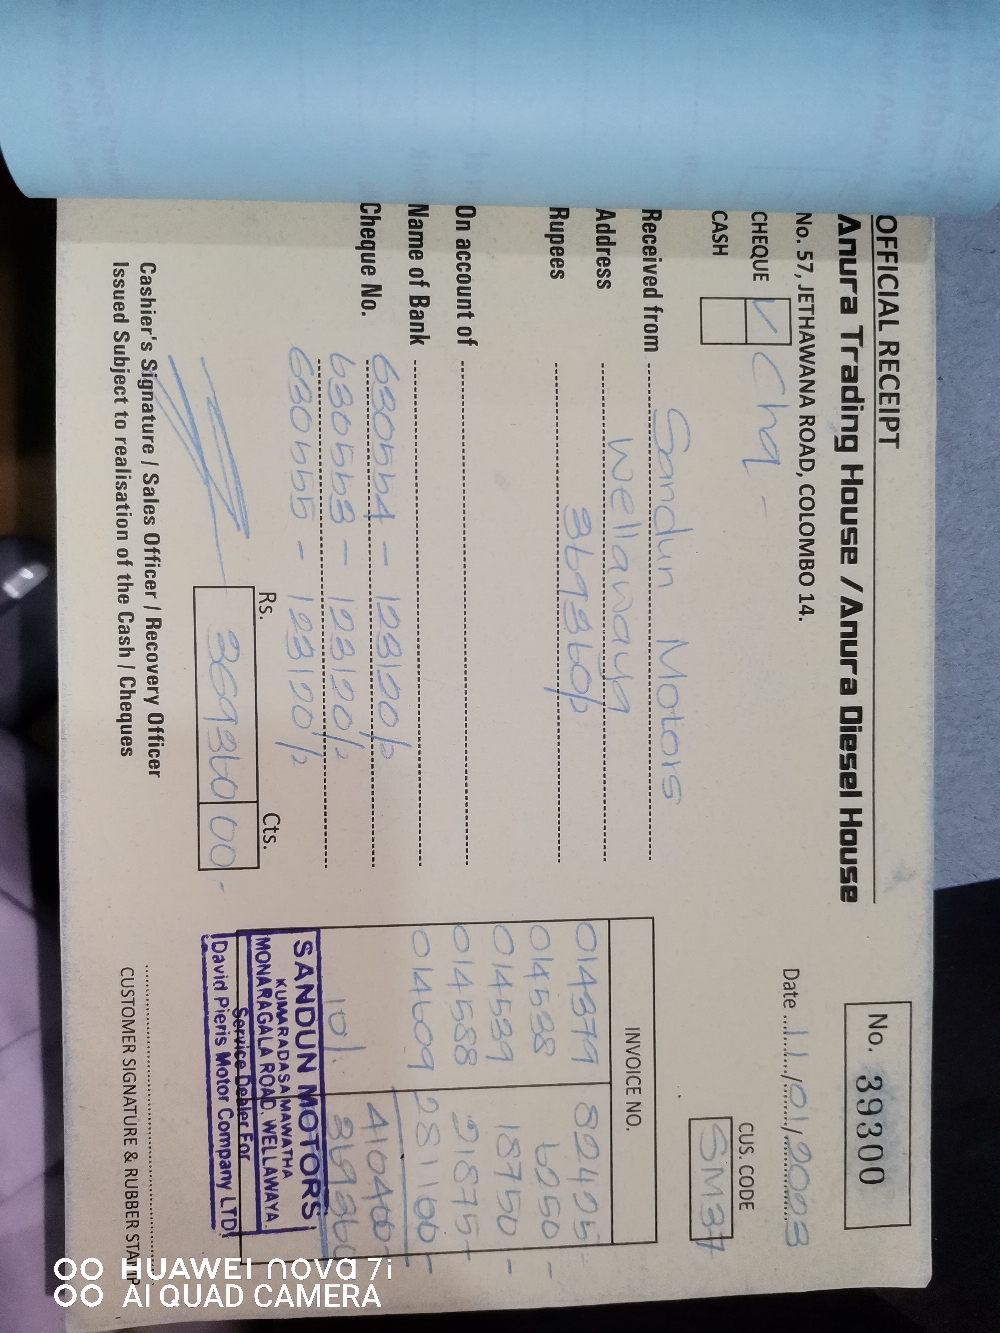 OFFICIAL RECEIPT
Anura Trading House / Anura Diesel House
No. 57, JETHAWANA ROAD, COLOMBO 14.
No. 39300
Date 11/01/2023
CHEQUE V Chq -
CASH
CUS. CODE
SM37
Received from Sandun Motors
Address Wellawaya
Rupees 369360/=
On account of
Name of Bank
Cheque No. 630554 - 123120/=
630553 - 123120/=
630555 - 123120/=
Rs. Cts.
369360 00 -
INVOICE NO.
014379 82425 -
014538 6250 -
014539 18750 -
014588 21875 -
014609 281100 -
410400
10%
369360
SANDUN MOTORS
KUMARADASA MAWATHA
MONARAGALA ROAD, WELLAWAYA.
Service Dealer For
David Pieris Motor Company LTD.
Cashier's Signature / Sales Officer / Recovery Officer
Issued Subject to realisation of the Cash / Cheques
CUSTOMER SIGNATURE & RUBBER STAMP
HUAWEI nova 7i
AI QUAD CAMERA